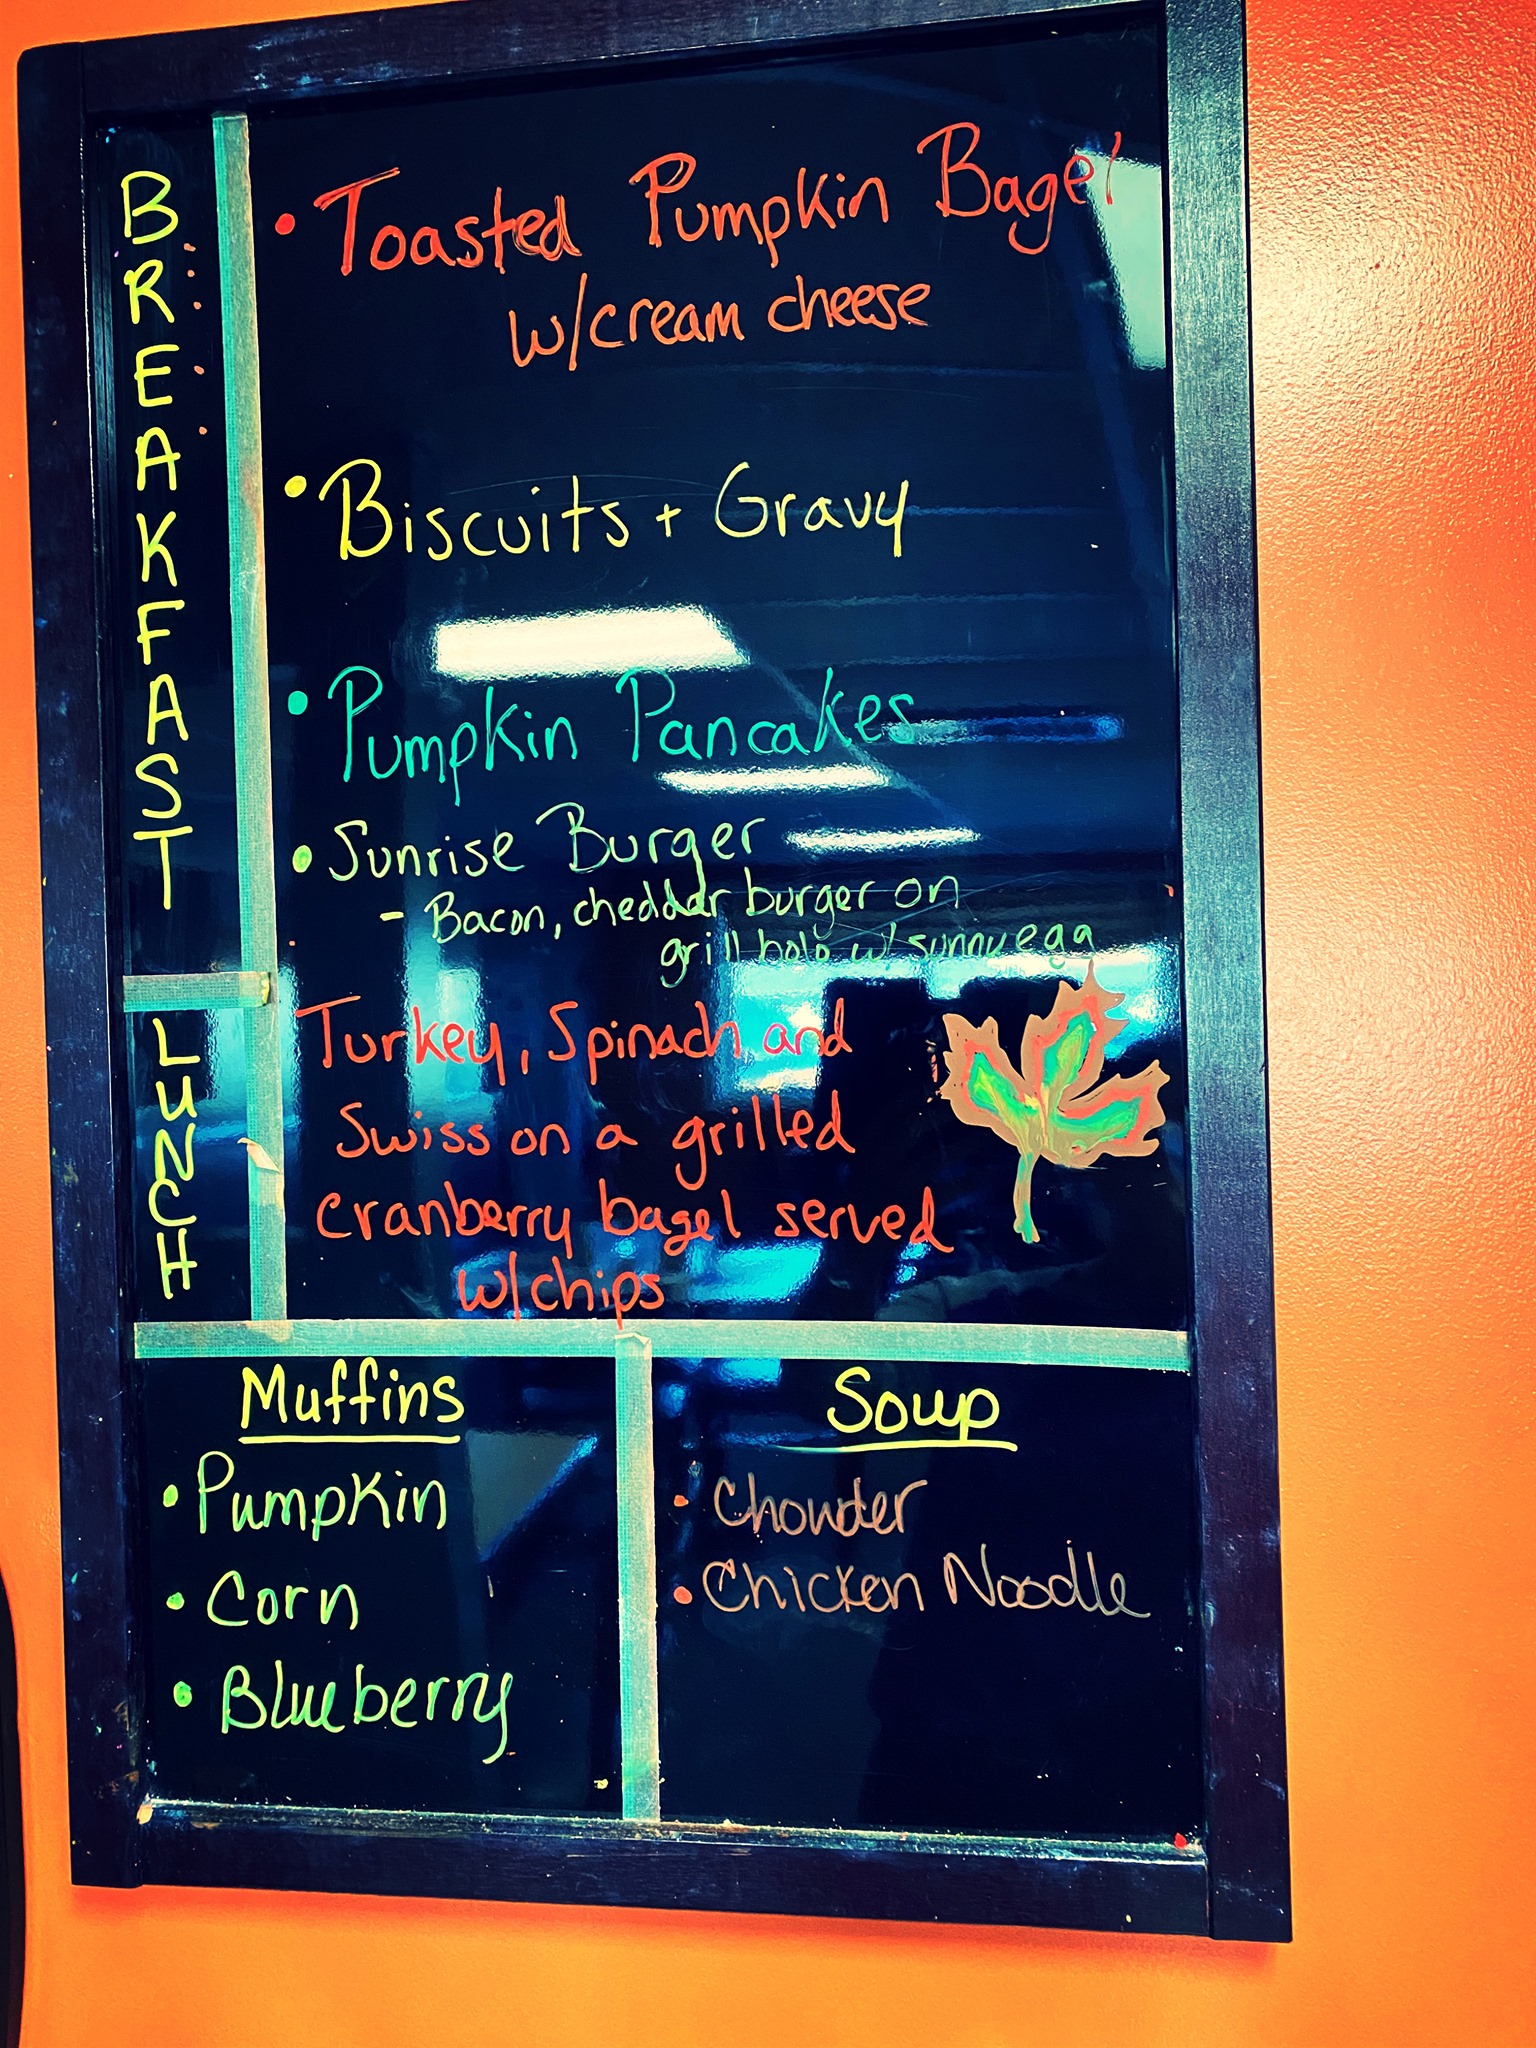 BREAKFAST
• Toasted Pumpkin Bagel
w/cream cheese
• Biscuits + Gravy
• Pumpkin Pancakes
• Sunrise Burger
- Bacon, cheddar burger on
grill bolo w/ sunny egg
LUNCH
Turkey, Spinach and
Swiss on a grilled
cranberry bagel served
w/chips
Muffins
• Pumpkin
• Corn
• Blueberry
Soup
• Chowder
• Chicken Noodle